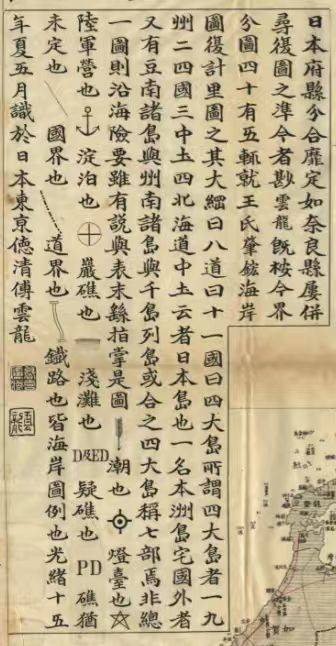 日本府縣分合靡定如奈良縣屢併
尋復圖之準今者斠雲龍既桉今界
分圖四十有五輒就王氏肇鋐海岸
圖復計里圖之其大綱曰八道曰十一國曰四大島所謂四大島者一九
州二四國三中土四北海道中土云者日本島也一名本洲島宅國外者
又有豆南諸島與州南諸島與千島列島或合之四大島稱七部焉非總
一圖則沿海險要雖有說與表未繇指掌是圖潮也燈臺也☆
陸軍營也⚓淀泊也⊕巖礁也淺灘也D&ED疑礁也PD礁猶
未定也國界也道界也鐵路也皆海岸圖例也光緒十五
年夏五月識於日本東京德清傅雲龍